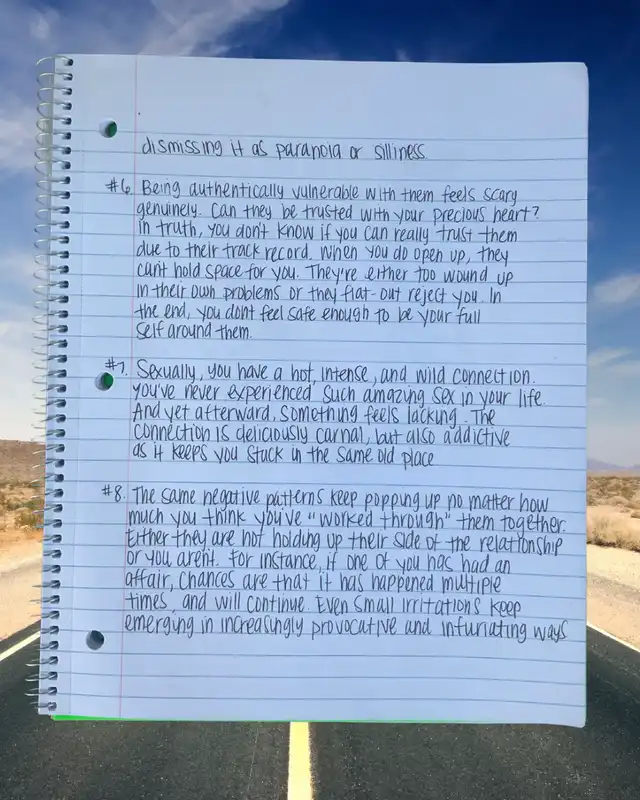 dismissing it as paranoia or silliness.
#6. Being authentically vulnerable with them feels scary
genuinely. Can they be trusted with your precious heart?
In truth, you don't know if you can really trust them
due to their track record. When you do open up, they
can't hold space for you. They're either too wound up
in their own problems or they flat-out reject you. In
the end, you dont feel safe enough to be your full
self around them.
#7. Sexually, you have a hot, intense, and wild connection.
You've never experienced such amazing sex in your life.
And yet afterward, something feels lacking. The
connection is deliciously carnal, but also addictive
as it keeps you stuck in the same old place
#8. The same negative patterns keep popping up no matter how
much you think you've "worked through" them together.
Either they are not holding up their side of the relationship
or you arent. For instance, if one of you has had an
affair, chances are that it has happened multiple
times, and will continue. Even small irritations keep
emerging in increasingly provocative and infuriating ways